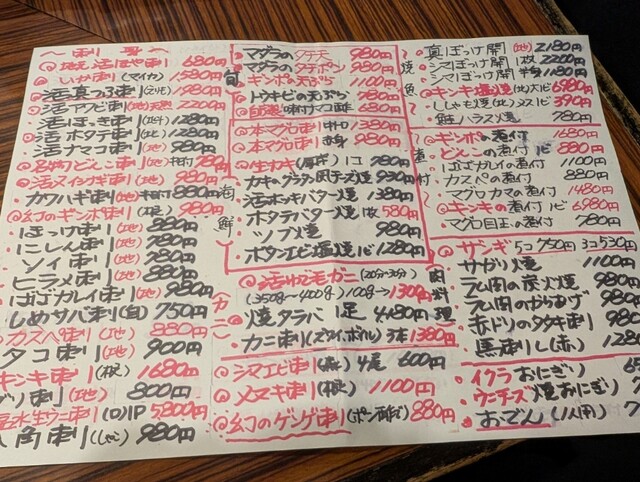 〜刺身〜
地元活ほや刺 680円
いか刺(マイカ) 1580円
活真つぶ刺 980円
活アワビ刺(地)天然 2200円
活ほっき刺(地) 1280円
活ホタテ刺(地) 1280円
活ナマコ刺(地) 980円
名物どんこ刺(地)肝付 780円
活メイシガギ刺(地) 980円
カワハギ刺(地)肝付 880円
幻のギンポ刺(根) 980円
ほっけ刺(地) 880円
にしん刺(地) 780円
ソイ刺(地) 780円
ヒラメ刺(地) 880円
ババガレイ刺(地) 980円
しめサバ刺(自) 750円
カスベ刺(地) 880円
タコ刺(地) 900円
キンキ刺(根) 1680円
刺(地) 800円
水生ウニ刺(ロ)1P 5800円
刺(しゃこ) 980円
旬
マダラのタチ天 980円
マダラのタチポン 980円
ギンポの天ぷら 1100円
トウキビの天ぷら 780円
自家製味付マコ 680円
本マグロ刺 中トロ 1380円
本マグロ刺 赤身 980円
生カキ(厚岸)1コ 780円
カキのグラタン風チーズ焼 930円
活ホッキバター焼 1380円
ホタテバター焼 1枚 580円
ツブ焼 980円
ボタンエビ塩焼 1ピ 1280円
海鮮
カニ
活ゆで毛ガニ(20分〜30分)
(350g〜400g)100g→1300円
焼タラバ 1足 4480円
カニ刺(ズワイ、ポン酢) 3本 1380円
シマエビ刺 4尾 600円
メヌキ刺(根) 1100円
幻のゲンゲ刺(ポン酢) 880円
焼魚
真ほっけ開(地) 2180円
シマほっけ開 1枚 2200円
シマほっけ開 半身 1180円
キンキ塩焼(地)大 1ピ 6980円
ししゃも焼(地)メス1ピ 390円
鮭ハラス焼 780円
煮付
ギンポの煮付 1680円
どんこの煮付 1ピ 880円
ババガレイの煮付 1100円
カスベの煮付 880円
マグロカマの煮付 1480円
キンキの煮付 1ピ 6980円
マグロ目玉の煮付 780円
肉料理
サンギ 5コ750円 3コ530円
サガリ焼 1100円
ラム肉の炭火焼 980円
ラム肉のからあげ 980円
赤ドリのタタキ刺 980円
馬刺し(赤) 1280
イクラおにぎり
ウニチーズ焼おにぎり
おでん(1人用)